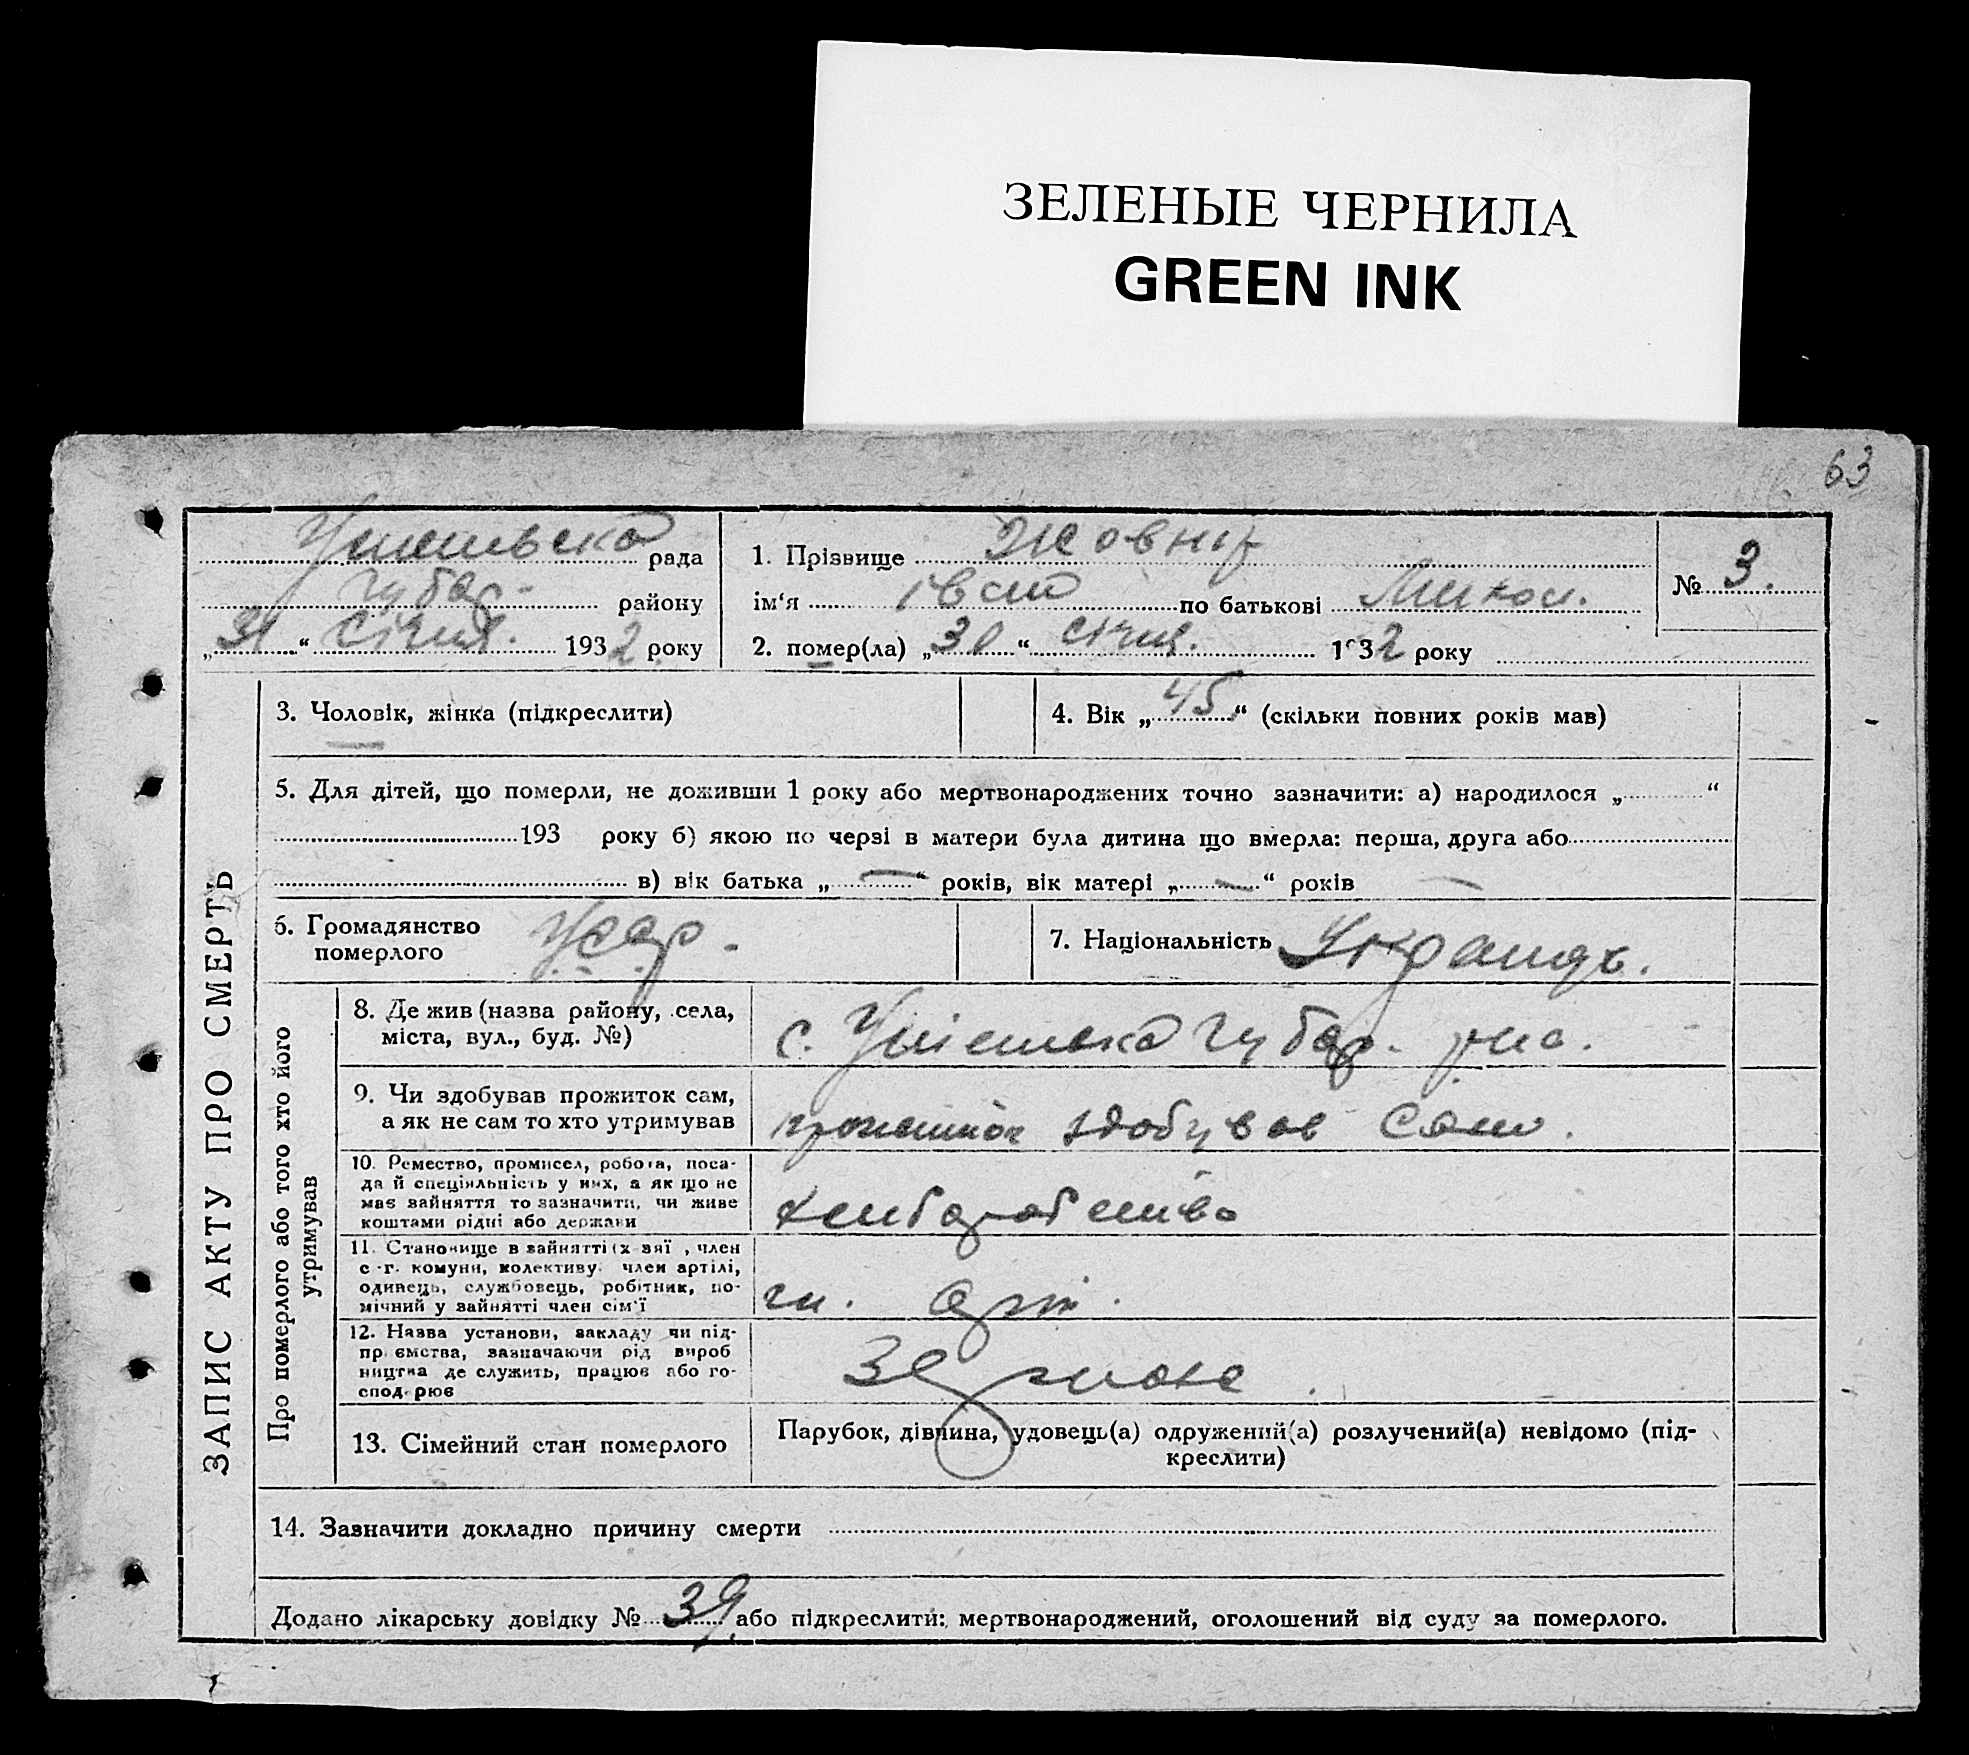 ЗЕЛЕНЫЕ ЧЕРНИЛА
GREEN INK
63
рада
Губар. району
„31“ Січня. 1932 року
1. Прізвище Жовнір
ім‘я Іван по батькові Микол.
2. помер(ла) „30“ січня. 1932 року
№ 3.
ЗАПИС АКТУ ПРО СМЕРТЬ
3. Чоловік, жінка (підкреслити)
4. Вік „45“ (скільки повних років мав)
5. Для дітей, що померли, не доживши 1 року або мертвонароджених точно зазначити: а) народилося „ “
193 року б) якою по черзі в матери була дитина що вмерла: перша, друга або
в) вік батька „—“ років, вік матері „—“ років —
6. Громадянство
померлого
УССР.
7. Національність
Про померлого або того хто його
утримував
8. Де жив (назва району, села,
міста, вул., буд. №)
с. Губар. р-на.
9. Чи здобував прожиток сам,
а як не сам то хто утримував
прожиток здобував сам.
10. Ремество, промисел, робота, поса-
да й спеціяльність у них, а як що не
має зайняття то зазначити, чи живе
коштами рідні або держави
хлиборобство
11. Становище в зайнятті (х-зяї , член
с.-г. комуни, колективу, член артілі,
одинець, службовець, робітник, по-
мічний у зайнятті член сім'ї
чл. арт.
12. Назва установи, закладу чи під-
приємства, зазначаючи рід вироб
ництва де служить, працює або го-
сподарює
13. Сімейний стан померлого
Парубок, дівчина, удовець(а) одружений(а) розлучений(а) невідомо (під-
креслити)
14. Зазначити докладно причину смерти
Додано лікарську довідку № 39 або підкреслити: мертвонароджений, оголошений від суду за померлого.